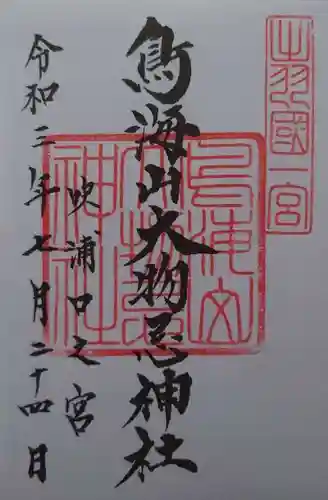 出羽國一宮
鳥海山大物忌神社
吹浦口之宮
令和三年七月二十四日
鳥海山
大物忌
神社